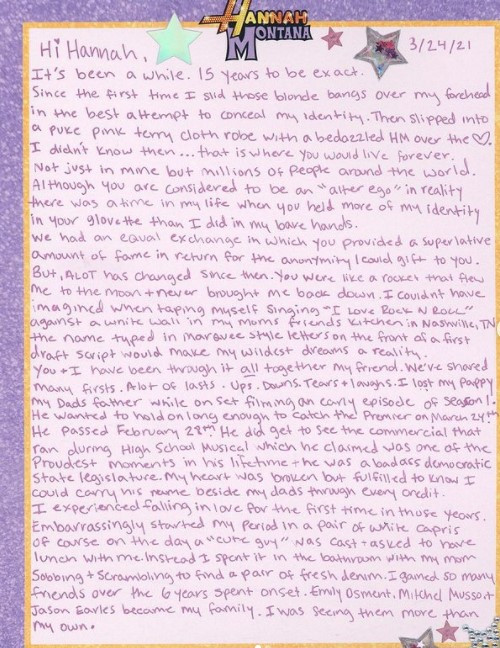 HANNAH
MONTANA
Hi Hannah,
3/24/21
It's been a while. 15 years to be exact.
Since the first time I slid those blonde bangs over my forehead
in the best attempt to conceal my identity. Then slipped into
a puke pink terry cloth robe with a bedazzled HM over the ♡.
I didn't know then... that is where you would live forever.
Not just in mine but millions of people around the world.
Although you are considered to be an "alter ego" in reality
there was a time in my life when you held more of my identity
in your glovette than I did in my bare hands.
We had an equal exchange in which you provided a superlative
amount of fame in return for the anonymity I could gift to you.
But, ALOT has changed since then. You were like a rocket that flew
me to the moon + never brought me back down. I couldn't have
imagined when taping myself singing "I LOVE ROCK N ROLL"
against a white wall in my moms friends kitchen in Nashville, TN
the name typed in marquee style letters on the front of a first
draft script would make my wildest dreams a reality.
You + I have been through it all together my friend. We've shared
many firsts. Alot of lasts. Ups. Downs. Tears + laughs. I lost my Pappy
my Dads father while on set filming an early episode of season 1.
He wanted to hold on long enough to catch the Premier on March 24th.
He passed February 28th. He did get to see the commercial that
ran during High School Musical which he claimed was one of the
Proudest moments in his lifetime + he was a badass democratic
state legislature. My heart was broken but fulfilled to know I
could carry his name beside my dads through every credit.
I experienced falling in love for the first time in those years.
Embarrassingly started my period in a pair of white capris
of course on the day a "cute guy" was cast + asked to have
lunch with me. Instead I spent it in the bathroom with my mom
Sobbing + scrambling to find a pair of fresh denim. I gained so many
friends over the 6 years spent on set. Emily Osment, Mitchel Musso +
Jason Earles became my family. I was seeing them more than
my own.